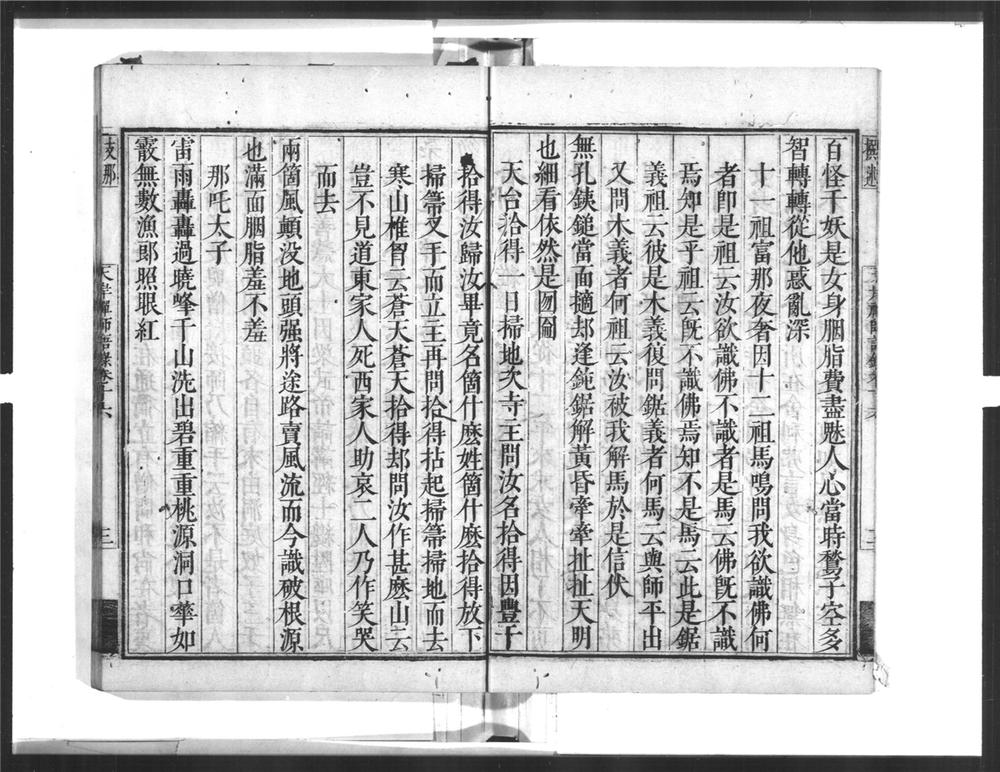 百怪千妖是女身胭脂費盡魅人心當時鶖子空多
智轉轉從他惑亂深
十一祖富那夜奢因十二祖馬鳴問我欲識佛何
者卽是祖云汝欲識佛不識者是馬云佛旣不識
焉知是乎祖云旣不識佛焉知不是馬云此是鋸
義祖云彼是木義復問鋸義者何馬云與師平出
又問木義者何祖云汝被我解馬於是信伏
無孔鉄鎚當面擿却逢鈍鋸解黃昏牽牽扯扯天明
也細看依然是囫圇
天台拾得一日掃地次寺主問汝名拾得因豐干
拾得汝歸汝畢竟名箇什麽姓箇什麽拾得放下
掃箒叉手而立主再問拾得拈起掃箒掃地而去
寒山椎胷云蒼天蒼天拾得却問汝作甚麽山云
豈不見道東家人死西家人助哀二人乃作笑哭
而去
兩箇風顛没地頭强將途路賣風流而今識破根源
也滿面胭脂羞不羞
那吒太子
雷雨轟轟過曉峰千山洗出碧重重桃源洞口華如
霰無數漁郎照眼紅
天岸禪師語錄卷十六
三